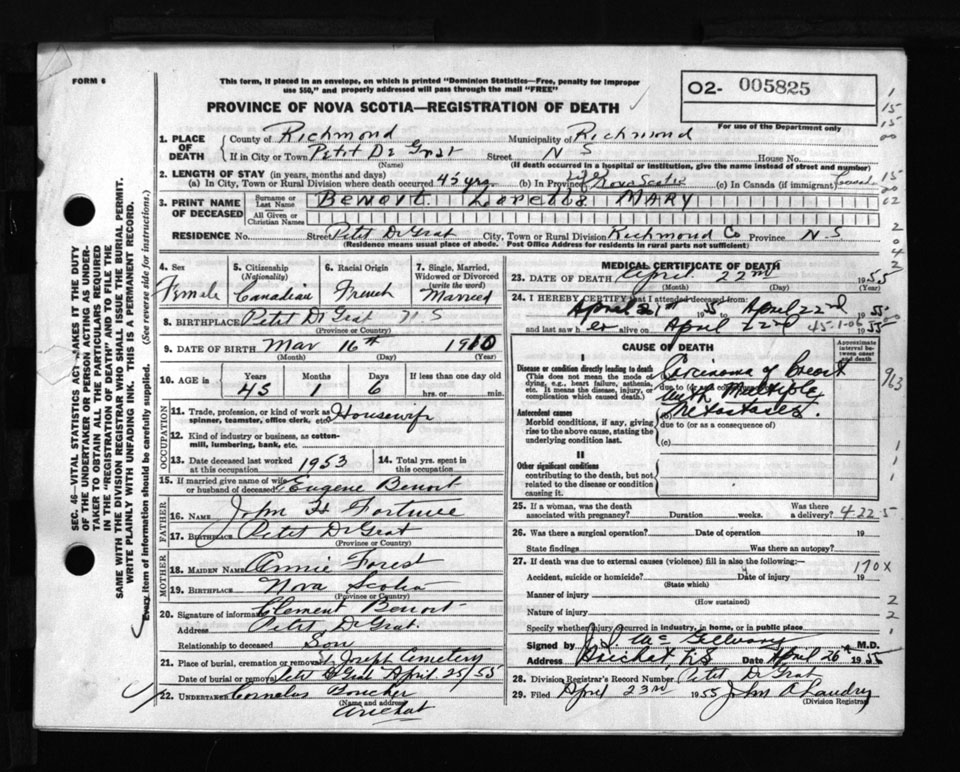 FORM 6
This form, if placed in an envelope, on which is printed "Dominion Statistics—Free, penalty for improper
use $50," and properly addressed will pass through the mail "FREE"
PROVINCE OF NOVA SCOTIA—REGISTRATION OF DEATH
O2- 005825
For use of the Department only
1. PLACE OF DEATH
County of Richmond Municipality of Richmond
If in City or Town Petit De Grat Street N S House No.
(Name) (If death occurred in a hospital or institution, give the name instead of street and number)
2. LENGTH OF STAY (in years, months and days)
(a) In City, Town or Rural Division where death occurred 45 yrs. (b) In Province Life Nova Scotia (c) In Canada (if immigrant) Canada
3. PRINT NAME OF DECEASED
Surname or Last Name BENOIT LORETTA MARY
All Given or Christian Names
RESIDENCE No. Street Petit De Grat City, Town or Rural Division Richmond Co Province N.S
(Residence means usual place of abode. Post Office Address for residents in rural parts not sufficient)
4. Sex Female
5. Citizenship (Nationality) Canadian
6. Racial Origin French
7. Single, Married, Widowed or Divorced (write the word) Married
8. Birthplace Petit De Grat N S
(Province or Country)
9. DATE OF BIRTH Mar 16th 1910
(Month) (Day) (Year)
10. AGE in Years Months Days If less than one day old
45 1 6 hrs. or min.
OCCUPATION
11. Trade, profession, or kind of work as spinner, teamster, office clerk, etc. Housewife
12. Kind of industry or business, as cotton-mill, lumbering, bank, etc.
13. Date deceased last worked at this occupation 1953
14. Total yrs. spent in this occupation
15. If married give name of wife or husband of deceased Eugene Benoit
FATHER
16. Name John H Fortune
17. Birthplace Petit De Grat
(Province or Country)
MOTHER
18. MAIDEN NAME Annie Forest
19. BIRTHPLACE Nova Scotia
(Province or Country)
20. Signature of informant Clement Benoit
Address Petit De Grat.
Relationship to deceased Son
21. Place of burial, cremation or removal St Joseph Cemetery
Date of burial or removal Petit De Grat April 25/55
22. UNDERTAKER Cornelus Boucher
(Name and address)
Arichat
MEDICAL CERTIFICATE OF DEATH
23. DATE OF DEATH April 22nd 1955
(Month) (Day) (Year)
24. I HEREBY CERTIFY that I attended deceased from
April 21st 1955 to April 22nd 1955
and last saw her alive on April 22nd 45-1-06 1955
CAUSE OF DEATH
Approximate interval between onset and death
I
Disease or condition directly leading to death
(This does not mean the mode of dying, e.g., heart failure, asthenia, etc. It means the disease, injury, or complication which caused death.)
Carcinoma of breast
due to (or as a consequence of)
with Multiple
Metastases.
Antecedent causes
Morbid conditions, if any, giving rise to the above cause, stating the underlying condition last.
(b)
due to (or as a consequence of)
(c)
II
Other significant conditions
contributing to the death, but not related to the disease or condition causing it.
25. If a woman, was the death associated with pregnancy? Duration weeks. Was there a delivery? 4-22-5
26. Was there a surgical operation? Date of operation 19
State findings Was there an autopsy?
27. If death was due to external causes (violence) fill in also the following:— 170X
Accident, suicide or homicide? Date of injury 19
(State which)
Manner of injury
(How sustained)
Nature of injury
Specify whether injury occurred in industry, in home, or in public place
Signed by J. J. McGillvary M.D.
Address Arichat, N.S Date April 26th 1955
28. Division Registrar's Record Number Petit De Grat
29. Filed April 23rd 1955 John A Landry
(Division Registrar)
SEC. 46—VITAL STATISTICS ACT MAKES IT THE DUTY
OF THE UNDERTAKER OR PERSON ACTING AS UNDER-
TAKER TO OBTAIN ALL THE PARTICULARS REQUIRED
IN THE "REGISTRATION OF DEATH" AND TO FILE THE
SAME WITH THE DIVISION REGISTRAR WHO SHALL ISSUE THE BURIAL PERMIT.
WRITE PLAINLY WITH UNFADING INK. THIS IS A PERMANENT RECORD.
Every item of information should be carefully supplied. (See reverse side for instructions.)
1
15
15
00
15
00
02
2
04
2
963
1
1
1
2
2
1